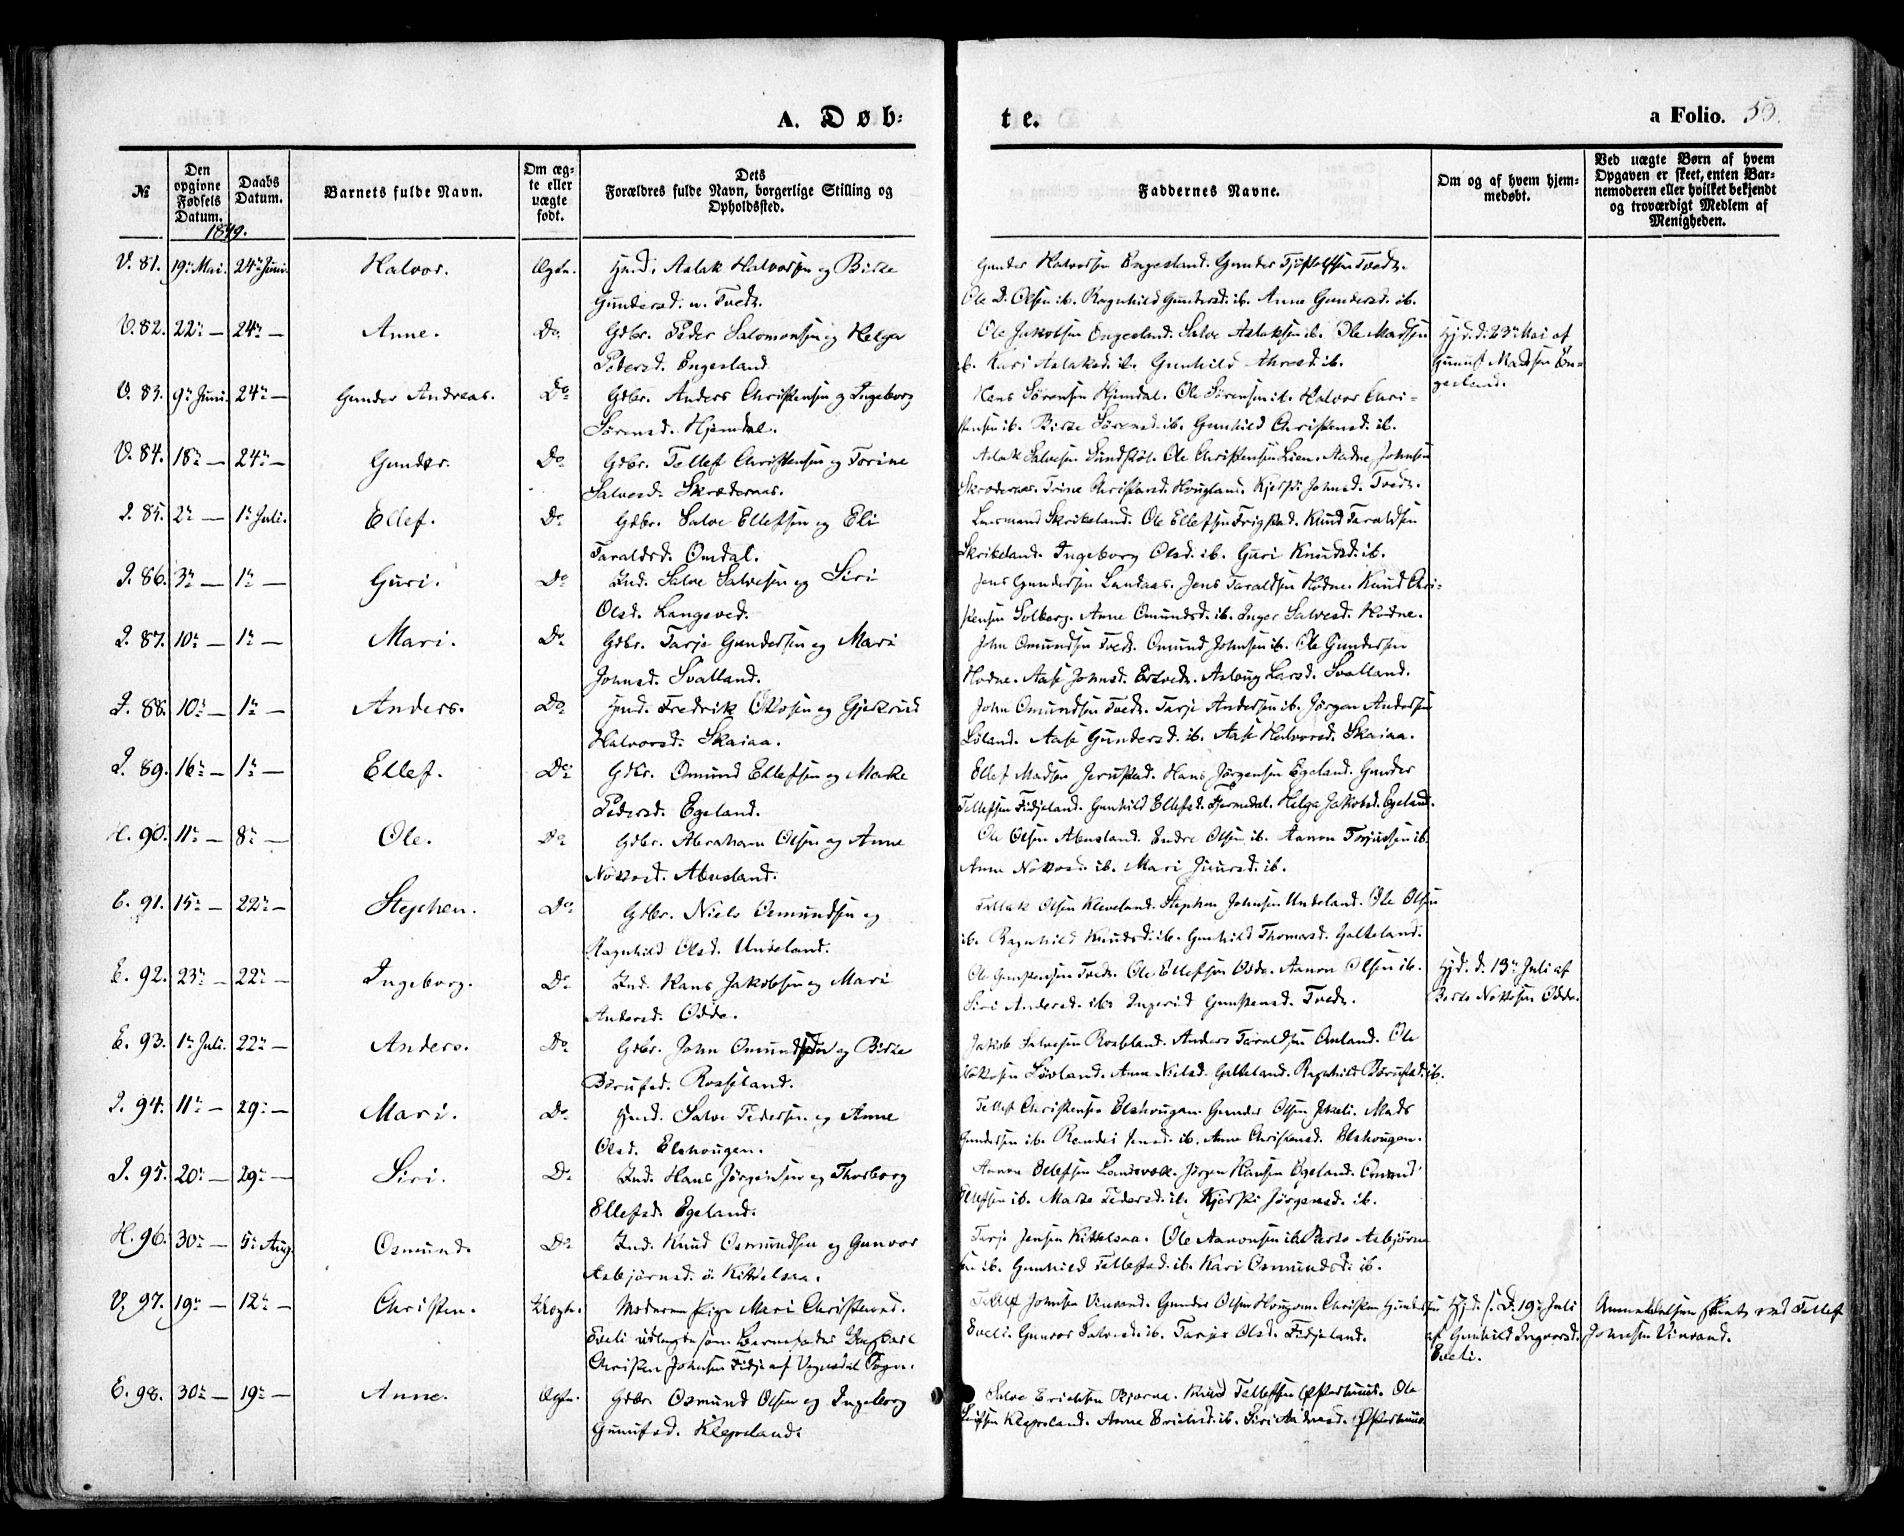 A. Døb-
te.
a Folio. 53.
№
Den opgivne Fødsels Datum.
Daabs Datum.
Barnets fulde Navn.
Om ægte eller uægte født.
Dets Forældres fulde Navn, borgerlige Stilling og Opholdssted.
Faddernes Navne.
Om og af hvem hjemmedøbt.
Ved uægte Børn af hvem Opgaven er skeet, enten Barnemoderen eller hvilket bekjendt og troværdigt Medlem af Menigheden.
1849.
V. 81. 19de Mai. 24de Juni. Halvor. Ægte. Aslak Halvorsen og Birte
Gundersd. Tvedt.
Gunder Halvorsen Engesland. Gunder Tjøstolfsen Tvedt.
Ole D. Olsen ib. Ragnhild Gundersd. ib. Anne Gundersd. ib.
V. 82. 22de — 24de — Anne. Do. Gdbr. Peder Salomonsen og Helga
Pedersd. Engesland.
Ole Jakobsen Engesland. Salve Aslaksen ib. Ole Madsen
ib. Kari Aslaksd. ib. Gunhild ib.
Hjd. d. 23de Mai af
Madsen En-
gesland.
V. 83. 9de Juni. 24de — Gunder Andreas. Do. Gdbr. Anders Christensen og Ingeborg
Sørensd. Hjemdal.
Hans Sørensen Hjemdal. Ole Sørensen ib. Halvor Chri-
stensen ib. Birte Sørensd. ib. Gunhild Christensd. ib.
V. 84. 18de — 24de — Gunder. Do. Gdbr. Tellef Christensen og Torine
Salvesd. Skrædernas.
Aslak Salvesen Sundsköl. Ole Christensen Lien. Aadne Johnsen
Skrædernas. Trine Christensd. Hougland. Kjersti Johnsd. Tvedt.
I. 85. 2de — 1ste Juli. Ellef. Do. Gdbr. Salve Ellefsen og Eli
Taraldsd. Omdal.
Skrikeland. Ole Ellefsen Frigstad. Knud Taraldsen
Skrikeland. Ingeborg Olsd. ib. Guri Knudsd. ib.
I. 86. 3de — 1ste — Guri. Do. Ind. Salve Salvesen og Siri
Olsd. Langeved.
Jens Gundersen Landaas. Jens Taraldsen Hodne. Knud Chri-
stensen Solberg. Anne Omundsd. ib. Inger Salvesd. Hodne.
I. 87. 10de — 1ste — Mari. Do. Gdbr. Tarje Gundersen og Mari
Johnsd. Svalland.
John Omundsen Tvedt. Omund Johnsen ib. Ole Gundersen
Hodne. Aase Johnsd. Ertvedt. Aslaug Larsd. Svalland.
I. 88. 10de — 1ste — Anders. Do. Fredrik Ottosen og Gjertrud
Halvorsd. Skaiaa.
John Omundsen Tvedt. Tarje Andersen ib. Jørgen Andersen
Løland. Aase Gundersd. ib. Aase Halvorsd. Skaiaa.
I. 89. 16de — 1ste — Ellef. Do. Gdbr. Omund Ellefsen og Marte
Pedersd. Egeland.
Ellef Madsen Jerustad. Hans Jørgensen Egeland. Gunder
Tellefsen Fidjeland. Gunhild Ellefsd. Fjermedal. Helga Jakobsd. Egeland.
H. 90. 11te — 8de — Ole. Do. Gdbr. Abraham Olsen og Anne
Nottosd. Abusland.
Ole Olsen Abusland. Endre Olsen ib. Aanon Torjussen ib.
Anne Nottosd. ib. Mari ib.
E. 91. 15de — 22de — Stephen. Do. Gdbr. Niels Osmundsen og
Ragnhild Olsd. Undeland.
Tellak Olsen Kleveland. Stephen Johnsen Undeland. Ole Olsen
ib. Ragnhild Knudsd. ib. Gunhild Thomasd. Galteland.
E. 92. 23de — 22de — Ingeborg. Do. Ind. Hans Jakobsen og Mari
Andersd. Odde.
Ole Gunstensen Tvedt. Ole Ellefsen Odde. Aanon Olsen ib.
Siri Andersd. ib. Ingerid Gunstensd. Tvedt.
Hjd. d. 13de Juli af
Berte Nottosen Odde.
E. 93. 1ste Juli. 22de — Anders. Do. Gdbr. John Omundsen og Birte
Børufsd. Rosseland.
Jakob Salvesen Rosseland. Anders Taraldsen Omland. Ole
Nottosen Løvland. Anne Nielsd. Galteland. Ragnhild Børufsd. ib.
I. 94. 11te — 29de — Mari. Do. Salve Pedersen og Anne
Olsd. Elshougen.
Tellef Christensen Elshougen. Gunder Olsen Eveli. Mads
Gundersen ib. Rendei Jensd. ib. Anne Christensd. Elshougen.
I. 95. 20de — 29de — Siri. Do. Ind. Hans Jørgensen og Thorborg
Ellefsd. Egeland.
Aanon Ellefsen Jørgen Hansen Egeland. Omund
Ellefsen ib. Marte Pedersd. ib. Kjersti Jørgensd. ib.
H. 96. 30te — 5te Aug. Osmund. Do. Ind. Knud Osmundsen og Gunvor
Asbjørnsd. ö. Kittelsaa.
Tarje Jensen Kittelsaa. Ole Aanonsen ib. Berte Asbjørn-
sen ib. Gunhild Tellefsd. ib. Kari Osmundsd. ib.
V. 97. 19de — 12te — Christen. Uægte. Moderen Pige Mari Christensd.
Eveli udlagde som Barnefader Ungkarl
Christen Johnsen Fidje af Vegusdal Sogn.
Tellef Johnsen Vinrand. Gunder Olsen Hougom. Christen Gundersen
Eveli. Gunvor Salvesd. ib. Tarjer Olsd. Fidjeland.
Hjd. s. D. 19de Juli
af Gunhild Ingvorsd.
Eveli.
Anmeldelsen skeet ved Tellef
Johnsen Vinrand.
E. 98. 30te — 19de — Anne. Ægte. Gdbr. Osmund Olsen og Ingeborg
Gunufsd. Klepeland.
Salve Erichsen Bjorva. Knud Tellefsen Østerhuus. Ole
Klepeland. Anne Erichsd. ib. Siri Østerhuus.